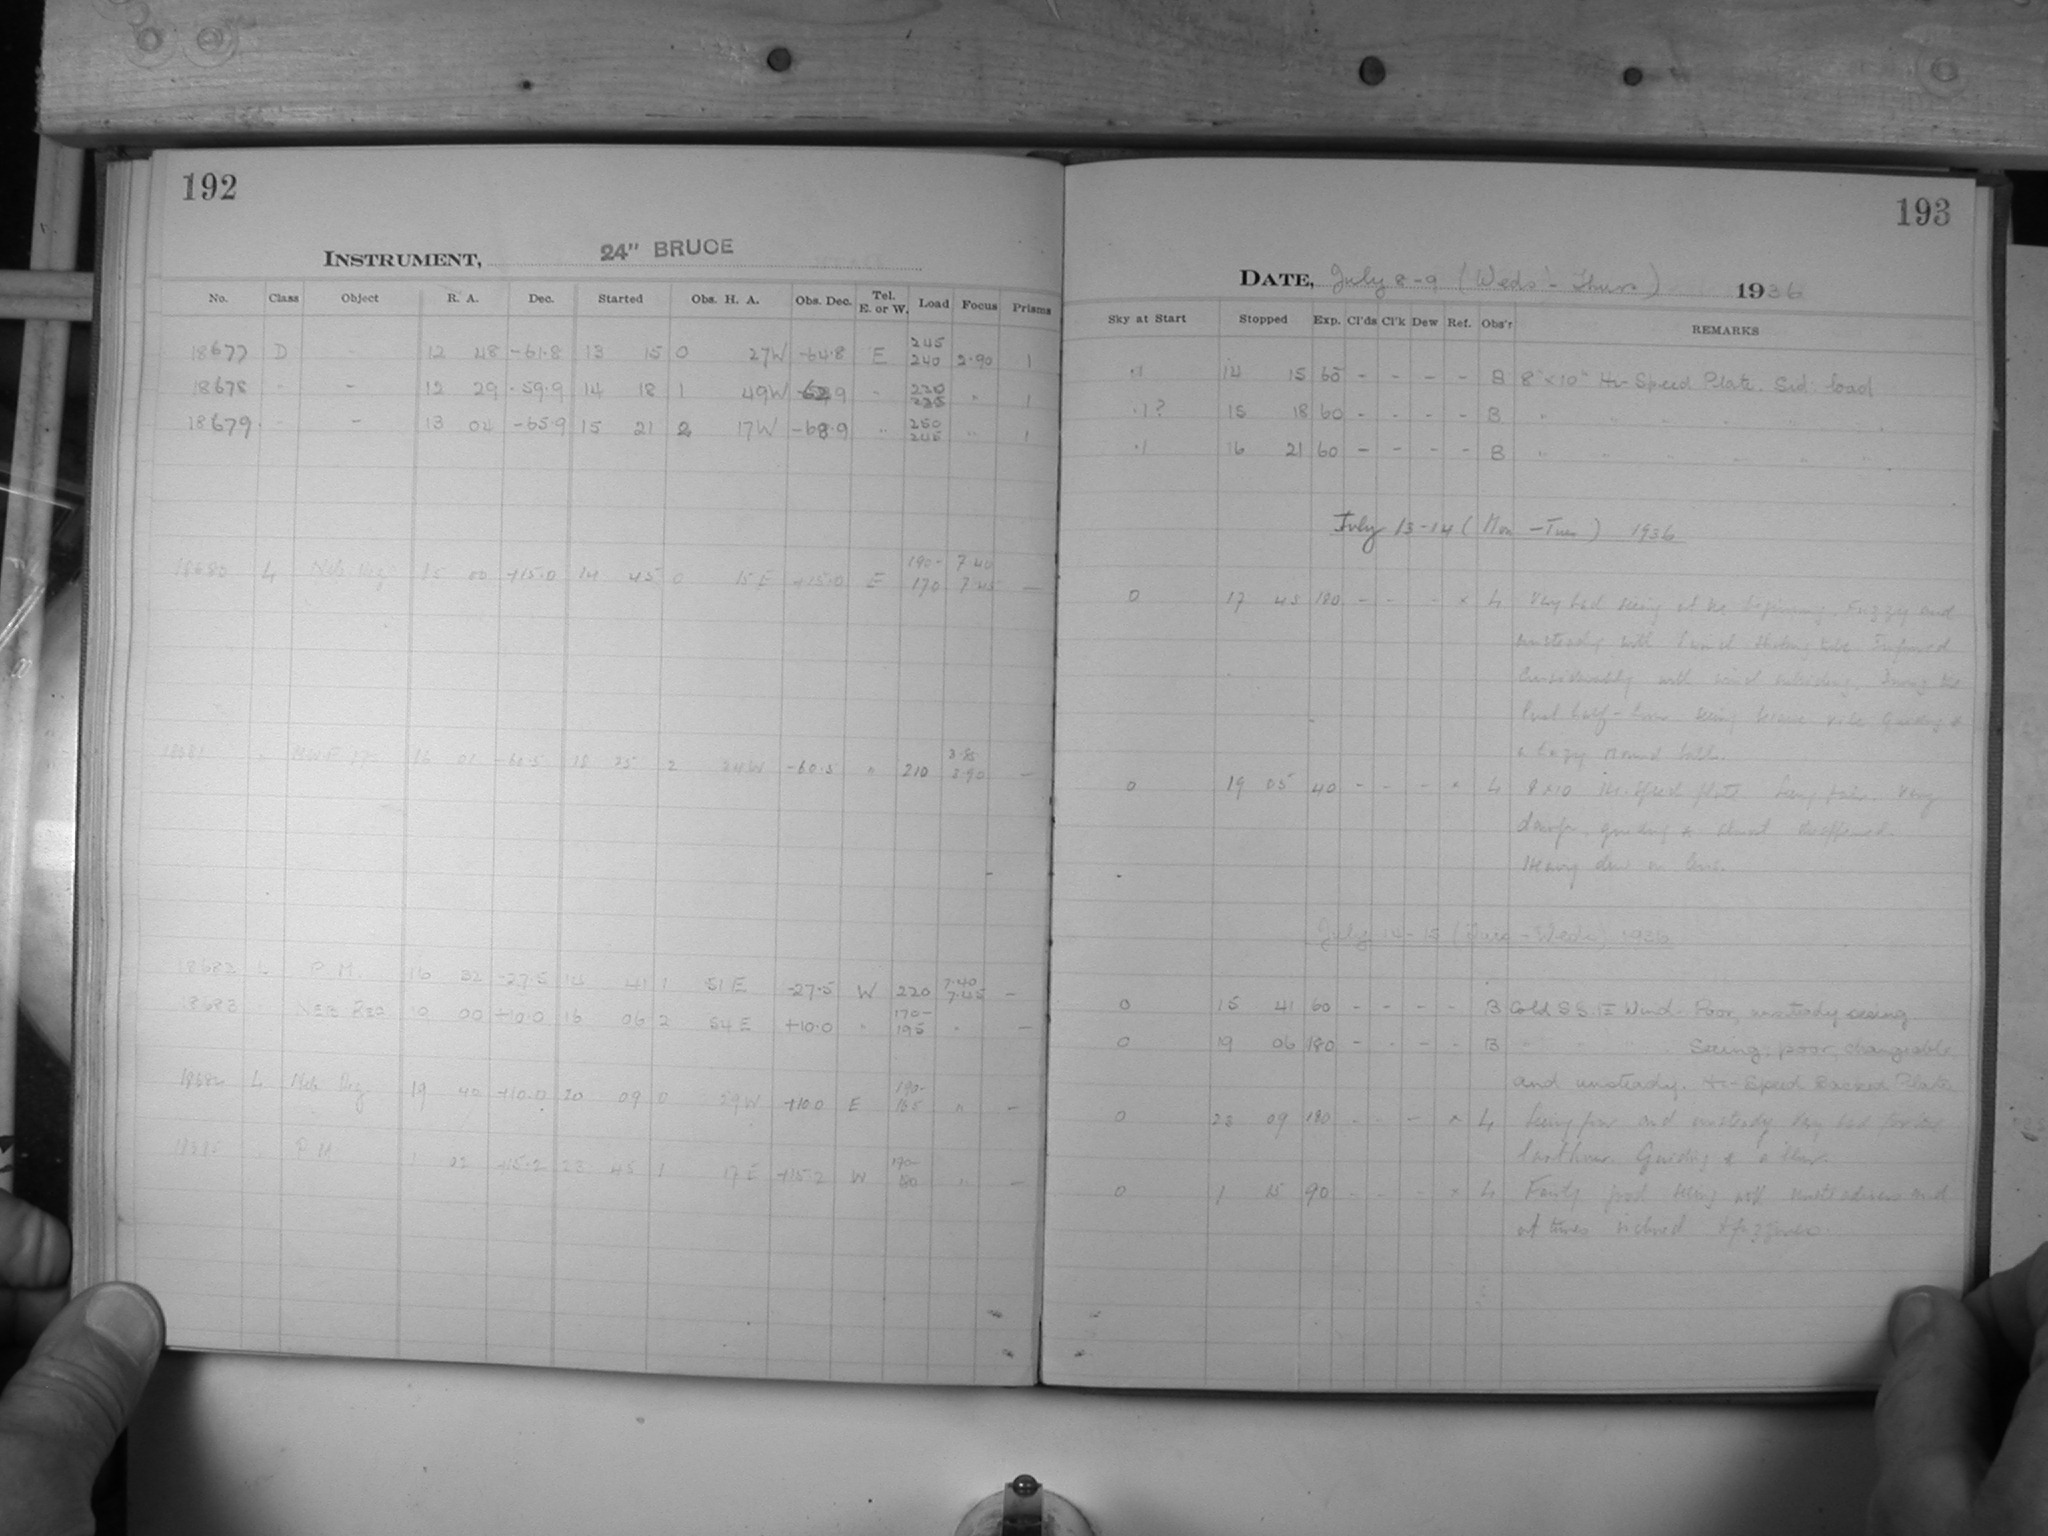 192
INSTRUMENT, 24" BRUCE
No. Class Object R. A. Dec. Started Obs. H. A. Obs. Dec. Tel. E. or W. Load Focus Prisms
18677 D - 12 48 -61.8 13 15 0 27W -64.8 E 245 240 2.90 1
18678 " - 12 29 -59.9 14 18 1 49W " 230 235 " 1
18679 " - 13 04 -65.9 15 21 2 17W -68.9 " 250 245 " 1
18680 L Neb Reg 15 00 +15.0 14 45 0 15E +15.0 E 190- 170 7.40 7.45 -
16 01 -60.5 18 25 2 24W -60.5 " 210 3.90 -
18682 L P M. 16 32 -27.5 14 41 1 51E -27.5 W 220 7.40 7.45 -
18683 NEB REG 19 00 +10.0 16 06 2 54E +10.0 " 170- 195 " -
18684 L Neb Reg 19 40 +10.0 20 09 0 29W +10.0 E 190- 165 " -
P M 1 02 +15.2 23 45 1 17E +15.2 W 170- " -
193
DATE, July 8-9 (Weds - Thurs) 1936
Sky at Start Stopped Exp. Cl'ds Cl'k Dew Ref. Obs'r REMARKS
.1 14 15 60 - - - - B 8" x 10" Hi-Speed Plate. Sid. load
.1? 15 18 60 - - - - B " " " " " "
.1 16 21 60 - - - - B " " " " " "
July 13-14 (Mon - Tues) 1936
0 17 45 180 - - - x L Very bad seeing at the beginning. Fuzzy and
unsteady with wind shaking tube. Improved
considerably with wind subsiding. During the
last half-hour seeing became Guiding *
a hazy round
0 19 05 40 - - - x L 8 x 10 Hi-Speed plate Seeing fair. Very
damp, guiding *
Heavy dew on lens.
July 14-15 (Tues - Weds) 1936
0 15 41 60 - - - - B Cold S S. E Wind - Poor, unsteady seeing.
0 19 06 180 - - - - B " " " Seeing, poor, changeable
and unsteady. Hi-Speed Backed Plate
0 23 09 180 - - - x L Seeing poor and unsteady Very bad for the
last hour. Guiding * a blur.
0 1 15 90 - - - x L Fairly good seeing with unsteadiness and
at times inclined to fuzziness.